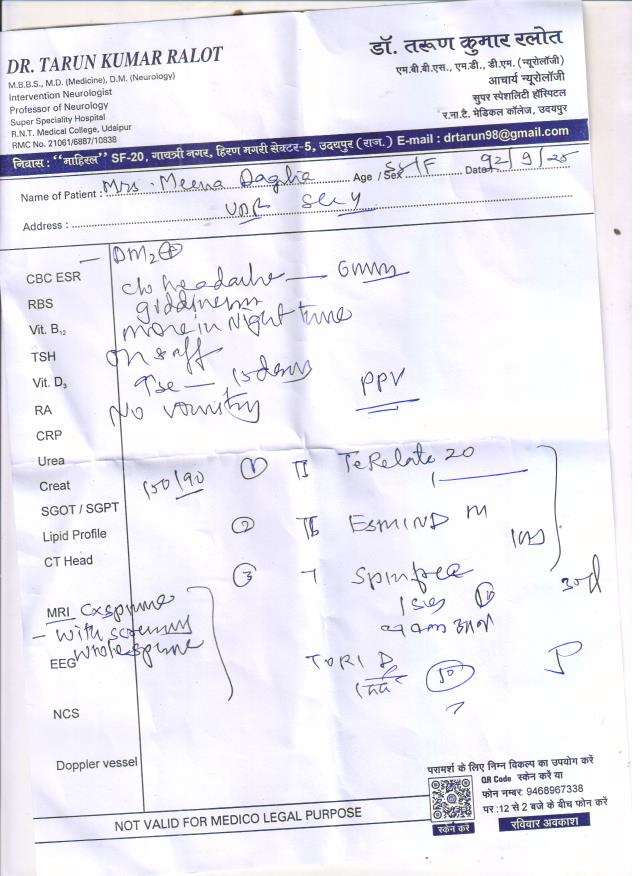 DR. TARUN KUMAR RALOT
M.B.B.S., M.D. (Medicine), D.M. (Neurology)
Intervention Neurologist
Professor of Neurology
Super Speciality Hospital
R.N.T. Medical College, Udaipur
RMC No. 21061/6887/10838
डॉ. तरूण कुमार रलोत
एम.बी.बी.एस., एम.डी., डी.एम. (न्यूरोलॉजी)
आचार्य न्यूरोलॉजी
सुपर स्पेशलिटी हॉस्पिटल
र.ना.टै. मेडिकल कॉलेज, उदयपुर
निवास : "माहिरल" SF-20, गायत्री नगर, हिरण मगरी सेक्टर-5, उदयपुर (राज.) E-mail : drtarun98@gmail.com
Name of Patient : Mrs. Meena Age / Sex Date
Address :
DM2 +
CBC ESR
c/o headache — 6mm
RBS
giddiness
Vit. B12
more in Night time
TSH
on & off
Vit. D3
15 days
PPV
RA
No vomiting
CRP
Urea
Creat
150/90
1 TeRelate 20
SGOT / SGPT
Lipid Profile
2 ESMIND M
CT Head
3 Spinfree
MRI Cx spine
- with screening
whole spine
EEG
TORI D
10
NCS
Doppler vessel
परामर्श के लिए निम्न विकल्प का उपयोग करें
QR Code स्केन करें या
फोन नम्बर: 9468967338
पर :12 से 2 बजे के बीच फोन करें
स्कैन करें
रविवार अवकाश
NOT VALID FOR MEDICO LEGAL PURPOSE